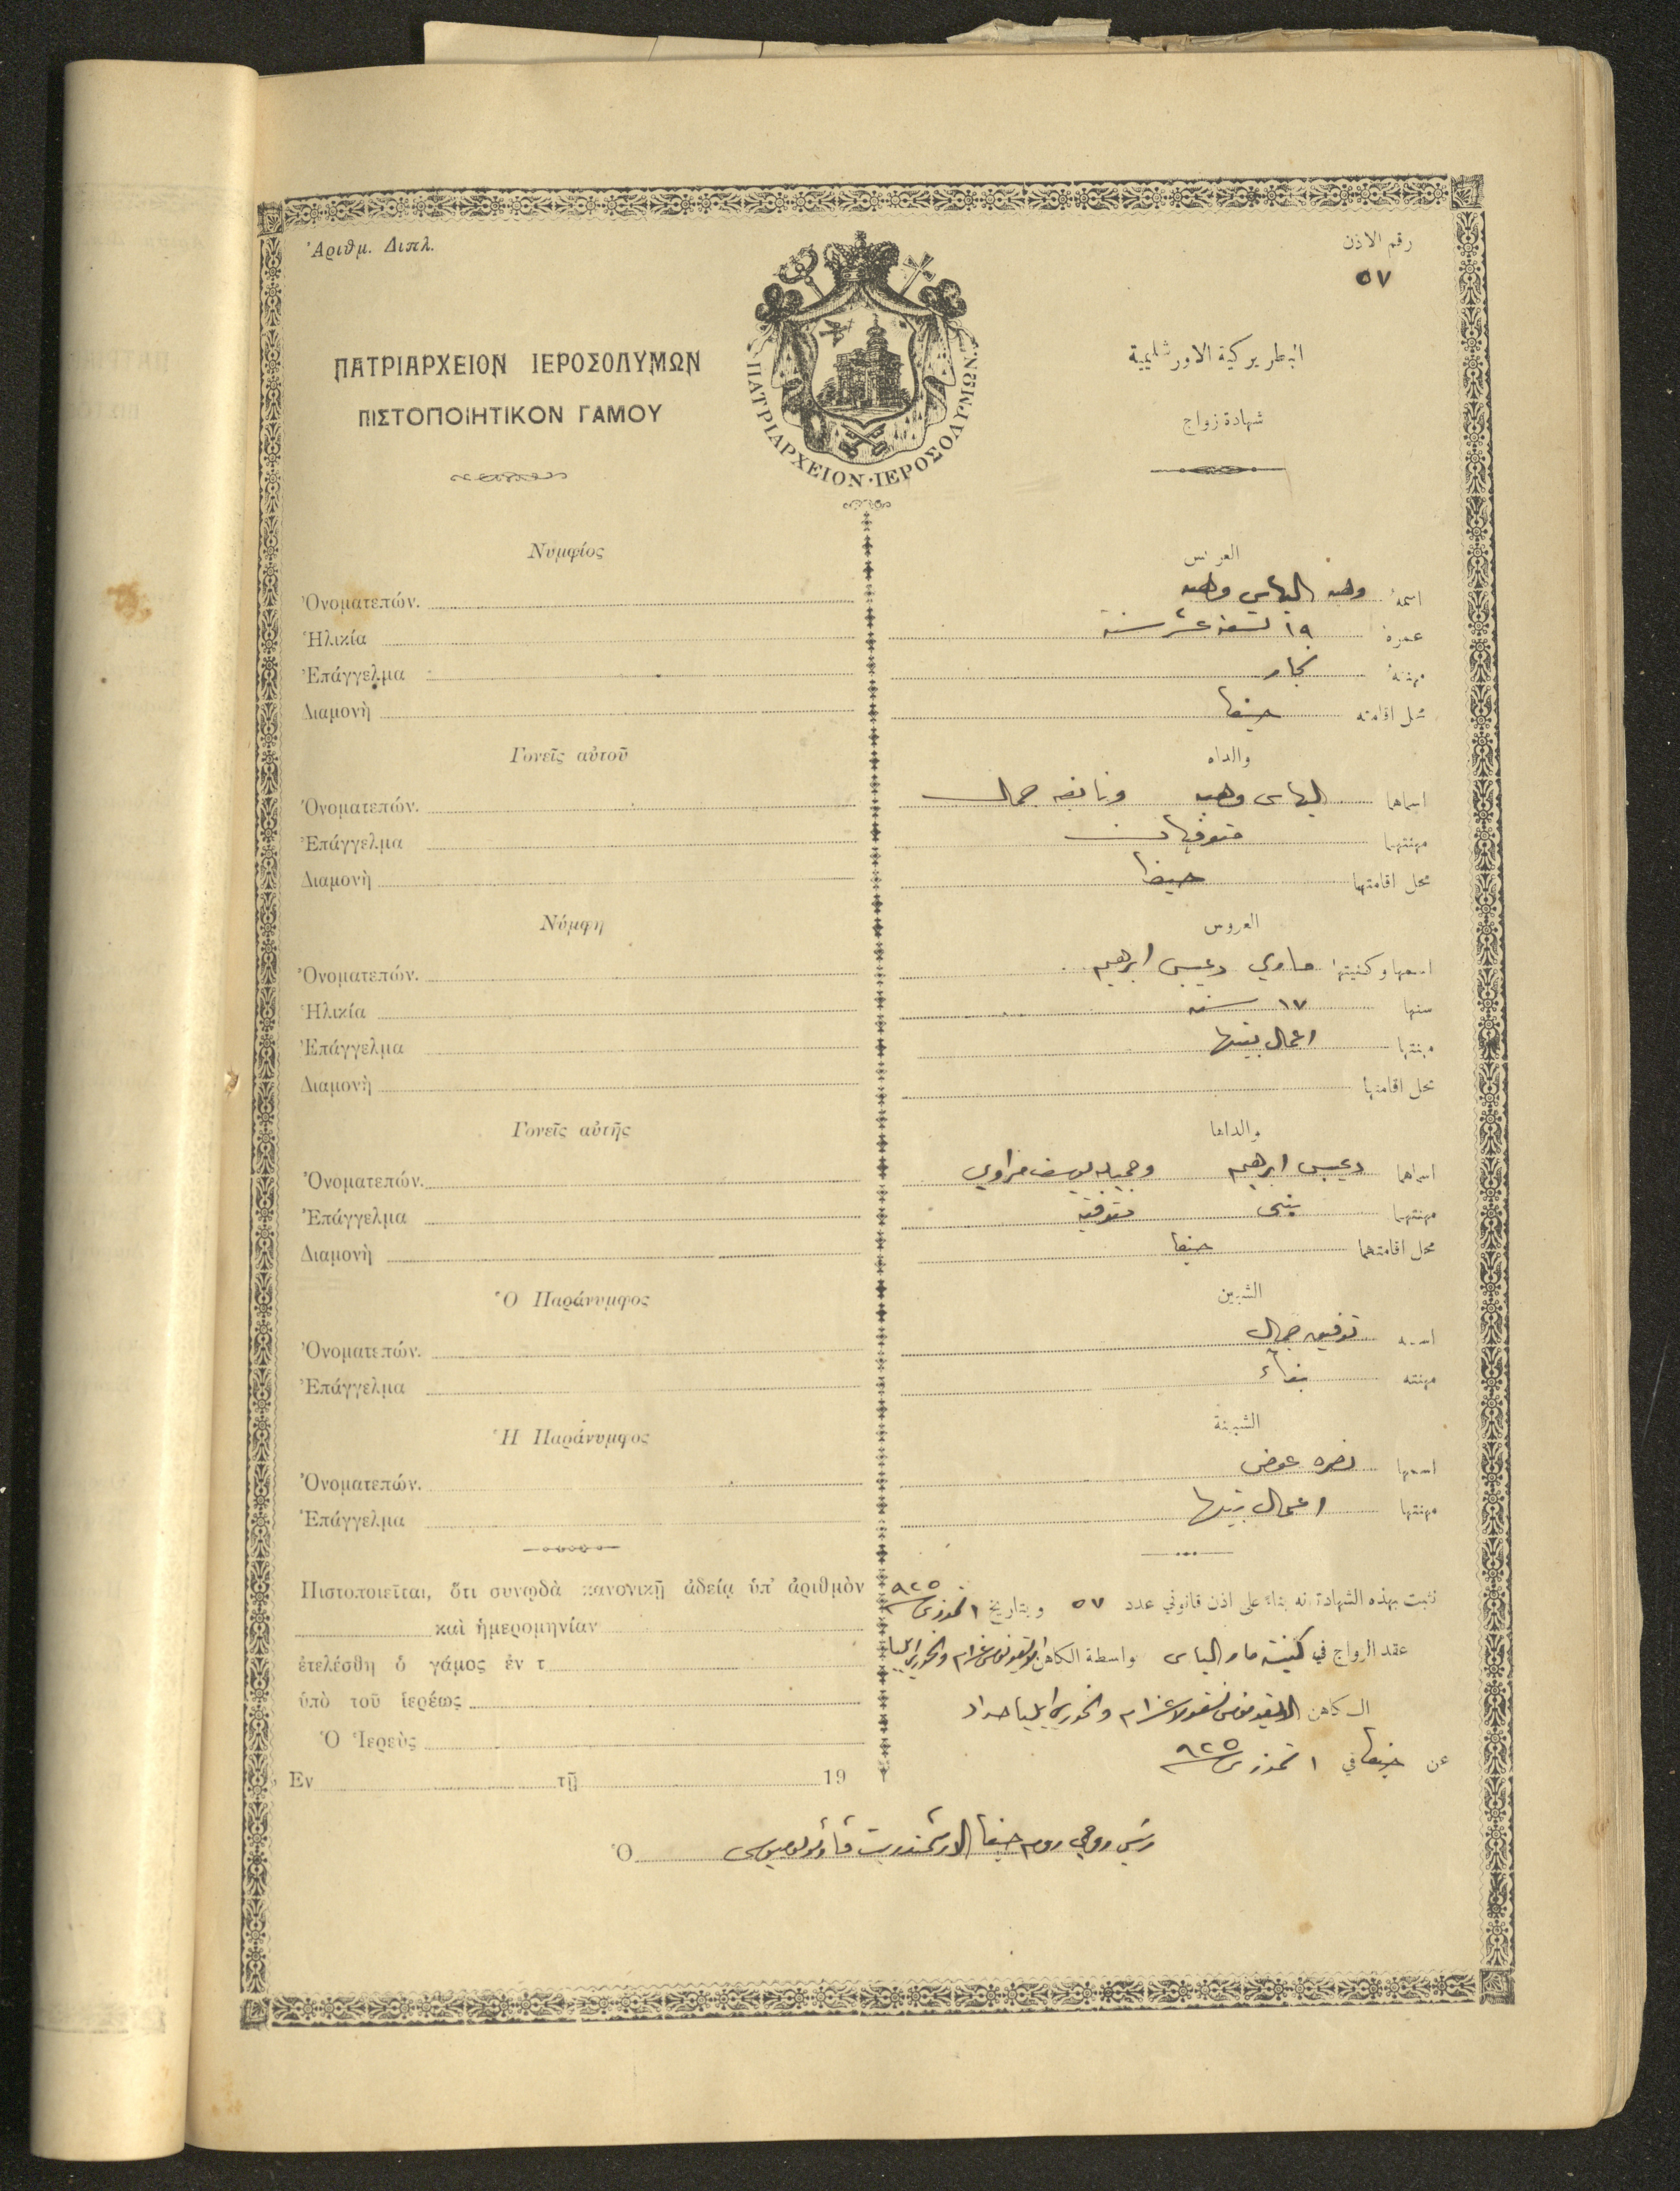 Ἀριθμ. Διπλ.
رقم الاذن
٥٧
ΠΑΤΡΙΑΡΧΕΙΟΝ ΙΕΡΟΣΟΛΥΜΩΝ
ΠΙΣΤΟΠΟΙΗΤΙΚΟΝ ΓΑΜΟΥ
ΠΑΤΡΙΑΡΧΕΙΟΝ·ΙΕΡΟΣΟΛΥΜΩΝ
البطريركية الاورشليمية
شهادة زواج
Νυμφίος
Ὀνοματεπών.
Ἡλικία
Ἐπάγγελμα
Διαμονὴ
Γονεῖς αὐτοῦ
Ὀνοματεπών.
Ἐπάγγελμα
Διαμονὴ
Νύμφη
Ὀνοματεπών.
Ἡλικία
Ἐπάγγελμα
Διαμονὴ
Γονεῖς αὐτῆς
Ὀνοματεπών.
Ἐπάγγελμα
Διαμονὴ
Ὁ Παράνυμφος
Ὀνοματεπών.
Ἐπάγγελμα
Ἡ Παράνυμφος
Ὀνοματεπών.
Ἐπάγγελμα
Πιστοποιεῖται, ὅτι συνῳδὰ κανονικῇ ἀδείᾳ ὑπ' ἀριθμὸν
καὶ ἡμερομηνίαν
ἐτελέσθη ὁ γάμος ἐν τ
ὑπὸ τοῦ ἱερέως
Ὁ Ἱερεὺς
Ἐν τῇ 19
العريس
اسمهُ وهبه الياس وهبه
عمرهُ ١٩ تسعة عشر سنة
مهنتهُ نجار
محل اقامته حيفا
والداه
اسماهما الياس وهبه ونايفه جمال
مهنتهما متوفيان
محل اقامتهما حيفا
العروس
اسمها وكنيتها دعيبس ابرهيم
سنها ١٧ سنه
مهنتها اعمال بيتها
محل اقامتها
والداها
اسماهما دعيبس ابرهيم وجميله يوسف
مهنتهما متوفيه
محل اقامتهما حيفا
الشبين
اسمه توفيق جمال
مهنته بناء
الشبينة
اسمها نصره عوض
مهنتها اعمال بيتها
نثبت بهذه الشهادة انه بناء على اذن قانوني عدد ٥٧ وبتاريخ ١ تموز سنة ٩٢٥
عقد الزواج في كنيسة مار الياس واسطة الكاهن والخوري ايليا
الكاهن الايقونوموس نقولا عزام والخوري ايليا حداد
عن حيفا في ١ تموز سنة ٩٢٥
Ὁ رئيس روحي روم حيفا الارشمندريت